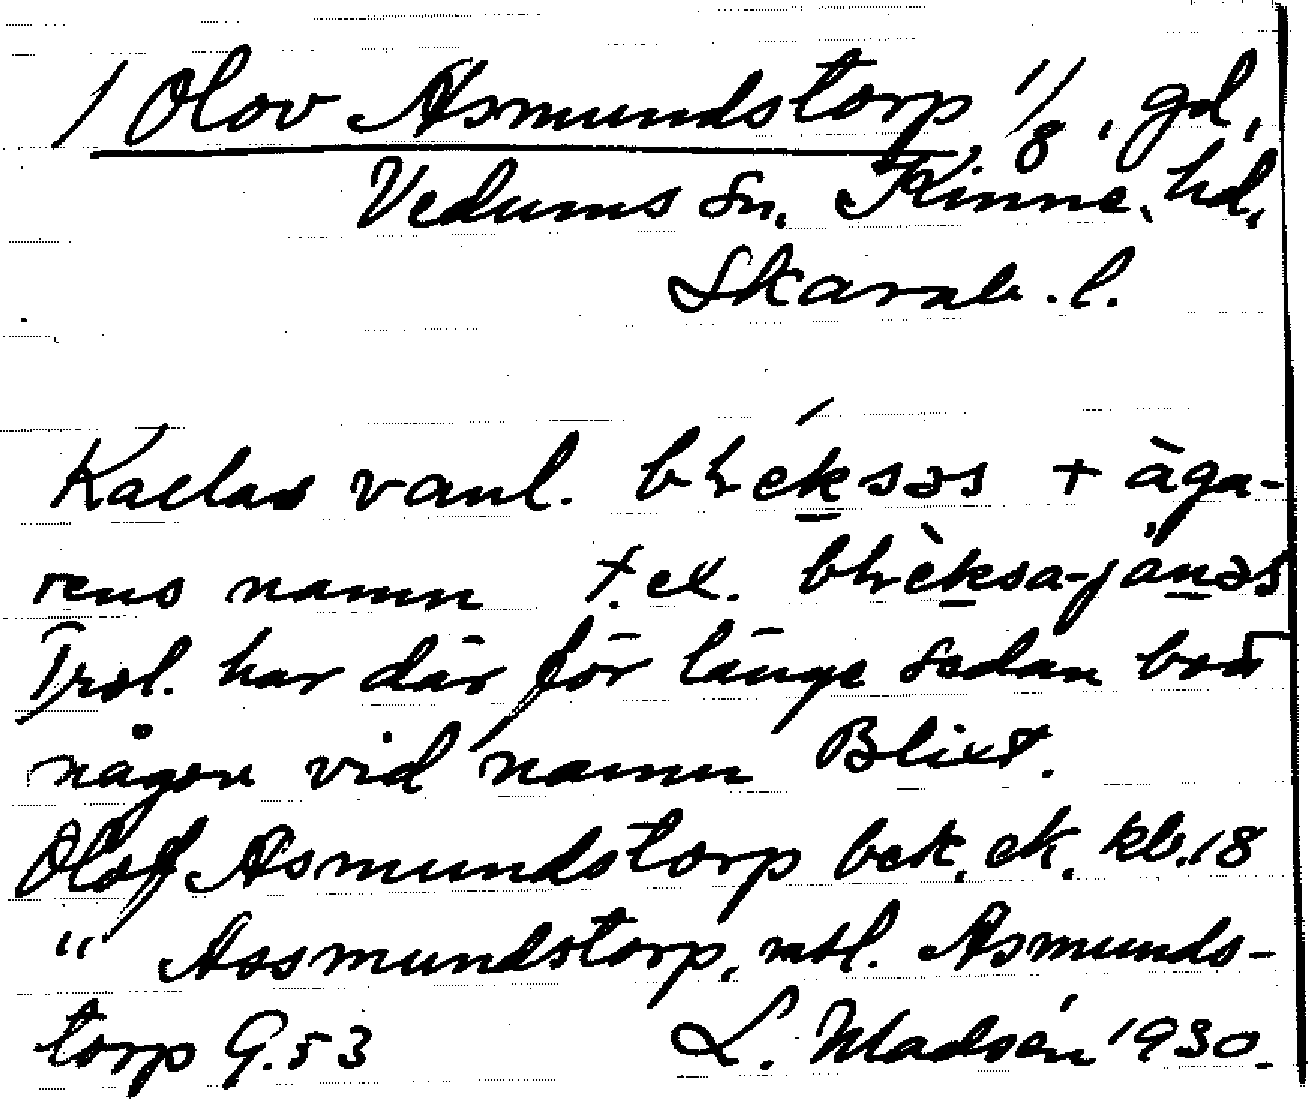 / Olov Asmundstorp, 1/8, gd,
Vedums sn. Kinne hd,
Skarab. l.
Kallas vanl. + äga-
rens namn t. ex.
Trol. har där för länge sedan bott
någon vid namn Blixt.
Olof Asmundstorp bet. ek. kb. 18
" Assmundstorp, mtl. Asmunds-
torp G. 53 L. Madsén 1930.